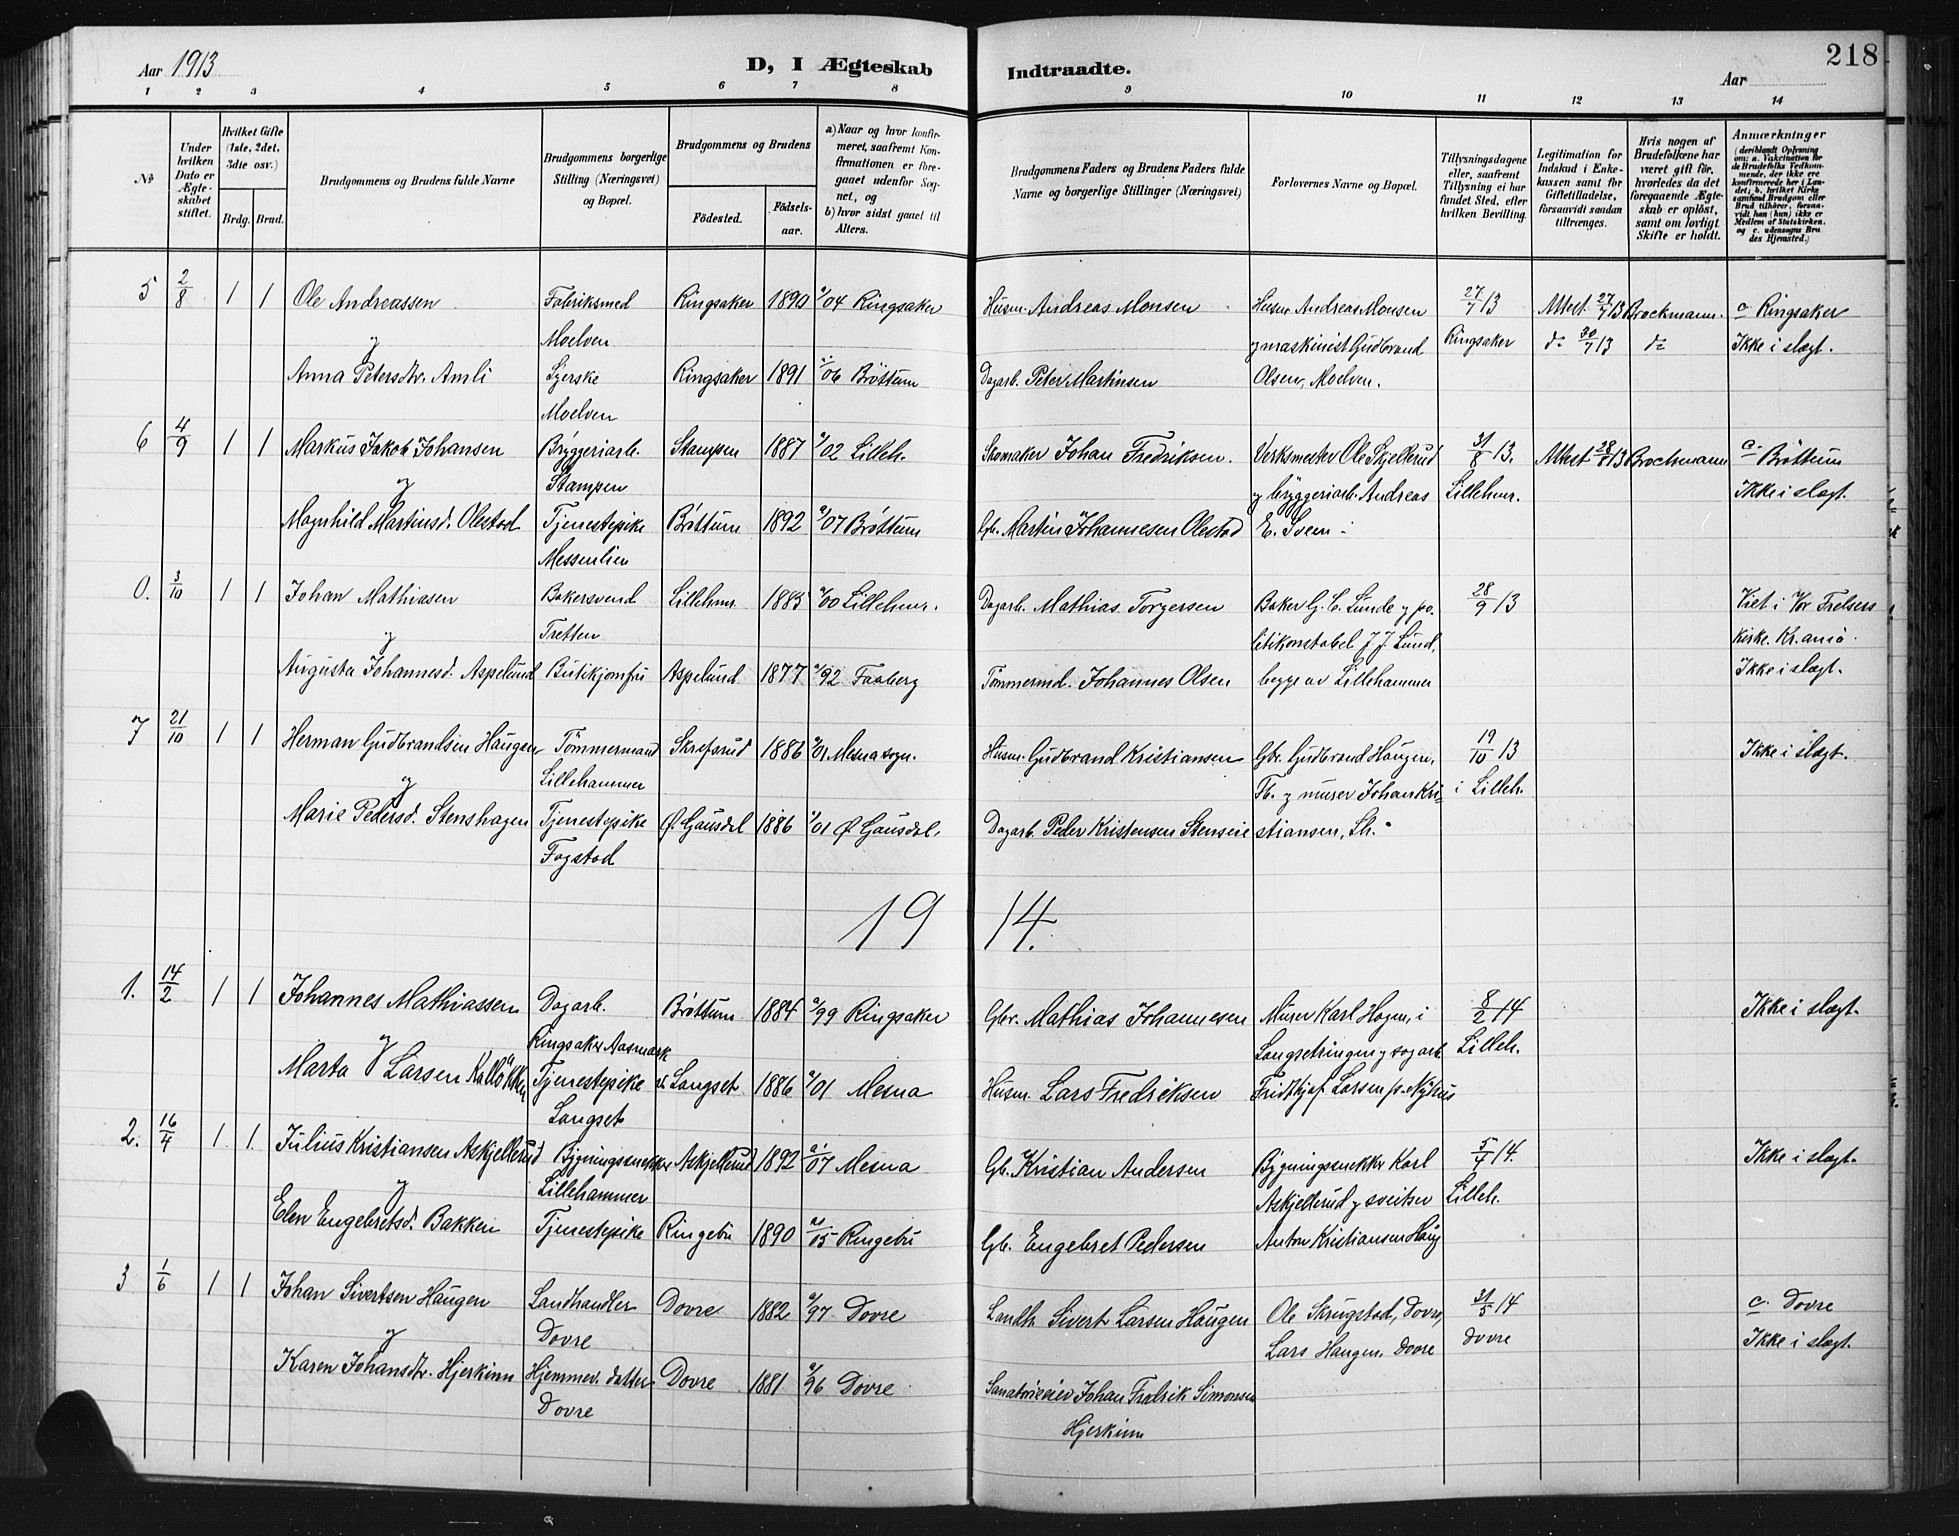 Aar 1913
D, I Ægteskab Indtraadte.
Aar
218
1 2 3 4 5 6 7 8 9 10 11 12 13 14
No
Under hvilken Dato er Ægteskabet stiftet.
Hvilket Gifte (1ste, 2det. 3die osv.)
Brdg. Brud.
Brudgommens og Brudens fulde Navne
Brudgommens borgerlige Stilling (Næringsvei) og Bopæl.
Brudgommens og Brudens
Fødested. Fødselsaar.
a) Naar og hvor konfirmeret, saafremt Konfirmationen er foregaaet udenfor Sognet, og
b) hvor sidst gaaet til Alters.
Brudgommens Faders og Brudens Faders fulde Navne og borgerlige Stillinger (Næringsvei)
Forlovernes Navne og Bopæl.
Tillysningsdagene eller, saafremt Tillysning ei har fundet Sted, efter hvilken Bevilling.
Legitimation for Indskud i Enkekassen samt for Giftetilladelse, forsaavidt saadan tiltrænges.
Hvis nogen af Brudefolkene har været gift før, hvorledes da det foregaaende Ægteskab er opløst, samt om lovligt Skifte er holdt.
Anmærkninger (deriblandt Oplysning om: a. Vakcination for de Brudefolks Vedkommende, der ikke ere konfirmerede her i Landet; b. hvilket Kirkesamfund Brudgom eller Brud tilhører, forsaavidt han (hun) ikke er Medlem af Statskirken, og c. udensogns Brudes Hjemsted.)
5 2/8 1 1 Ole Andreassen Fabriksmed Ringsaker 1890 04 Ringsaker Husm. Andreas Monsen Husm Andreas Monsen 27/7 13 Attest 27/7 13 Brockmann. c Ringsaker
y Moelven y maskinist Gudbrand Ringsaker do 30/7 13 do Ikke i slægt.
Anna Petersdtr. Amli Syerske Ringsaker 1891 06 Brøttum Dagarb. Peter Martinsen Olsen, Moelven.
Moelven
6 4/9 1 1 Markus Jakob Johansen Bryggeriarb. Stampen 1887 02 Lilleh. Skomaker Johan Fredriksen. Verksmester Ole Skjellerud 31/8 13. Attest 28/8 13 Brockmann c Brøttum
y Stampen y bryggeriarb. Andreas Lillehmr. Ikke i slægt.
Magnhild Martinsd. Olestad Tjenestepike Brøttum 1892 07 Brøttum Gb. Martin Johannesen Olestad E. Sveen
Messenlien
0. 3/10 1 1 Johan Mathiasen Bakersvend Lillehmr 1885 00 Lillehmr. Dagarb. Mathias Torgersen Baker G. C. Lunde y po- 28/9 13 Viet i Vor Frelsers
y Tretten litikonstabel J. J. Lund, kirke. Kr.ania.
Augusta Johannesd. Aspelund Butikjomfru Aspelund 1877 92 Faaberg Tømmermd. Johannes Olsen begge av Lillehammer Ikke i slægt.
7 21/10 1 1 Herman Gudbrandsen Haugen Tømmermand Skrefsrud 1886 01 Mesna sogn. Husm. Gudbrand Kristiansen Gbr. Gudbrand Haugen, 19/10 13 Ikke i slægt.
y Lillehammer Fb. y murer Johan Kri- i Lilleh.
Marie Pedersd. Stenshagen Tjenestepike Ø. Gausdal 1886 01 Ø Gausdal. Dagarb. Peder Kristensen Stenseie stiansen, Lh.
Fogstad
1914.
1. 14/2 1 1 Johannes Mathiassen Dagarb. Brøttum 1884 99 Ringsaker Gbr. Mathias Johannesen Murer Karl Hagen, i 8/2 14 Ikke i slægt.
y Ringsaker Aasmark Langsetringen y sagarb. Lilleh.
Marta Larsen Kalløkken Tjenestepike Langset 1886 01 Mesna Husm. Lars Fredriksen Fridthjof Larsen p. Nyhus
Langset
2. 16/4 1 1. Julius Kristiansen Askjellerud Bygningssnekker Askjellerud 1892 07 Mesna Gb. Kristian Andersen Bygningssnekker Karl 5/4 14. Ikke i slægt.
y Lillehammer Askjellerud y sveitser Lilleh.
Elen Engebretsd. Bakken Tjenestepike Ringebu 1890 05 Ringebu Gb. Engebret Pedersen Anton Kristiansen Haug
3 1/6 1 1 Johan Sivertsen Haugen Landhandler Dovre 1882 97 Dovre Landh. Sivert Larsen Haugen Ole Skrugstad, Dovre, 31/5 14 c. Dovre
y Dovre Lars Haugen, Dovre Dovre Ikke i slægt.
Karen Johansdtr. Hjerkinn Hjemmev. datter Dovre 1881 96 Dovre Sanatorieeier Johan Fredrik Simonsen
Dovre Hjerkinn